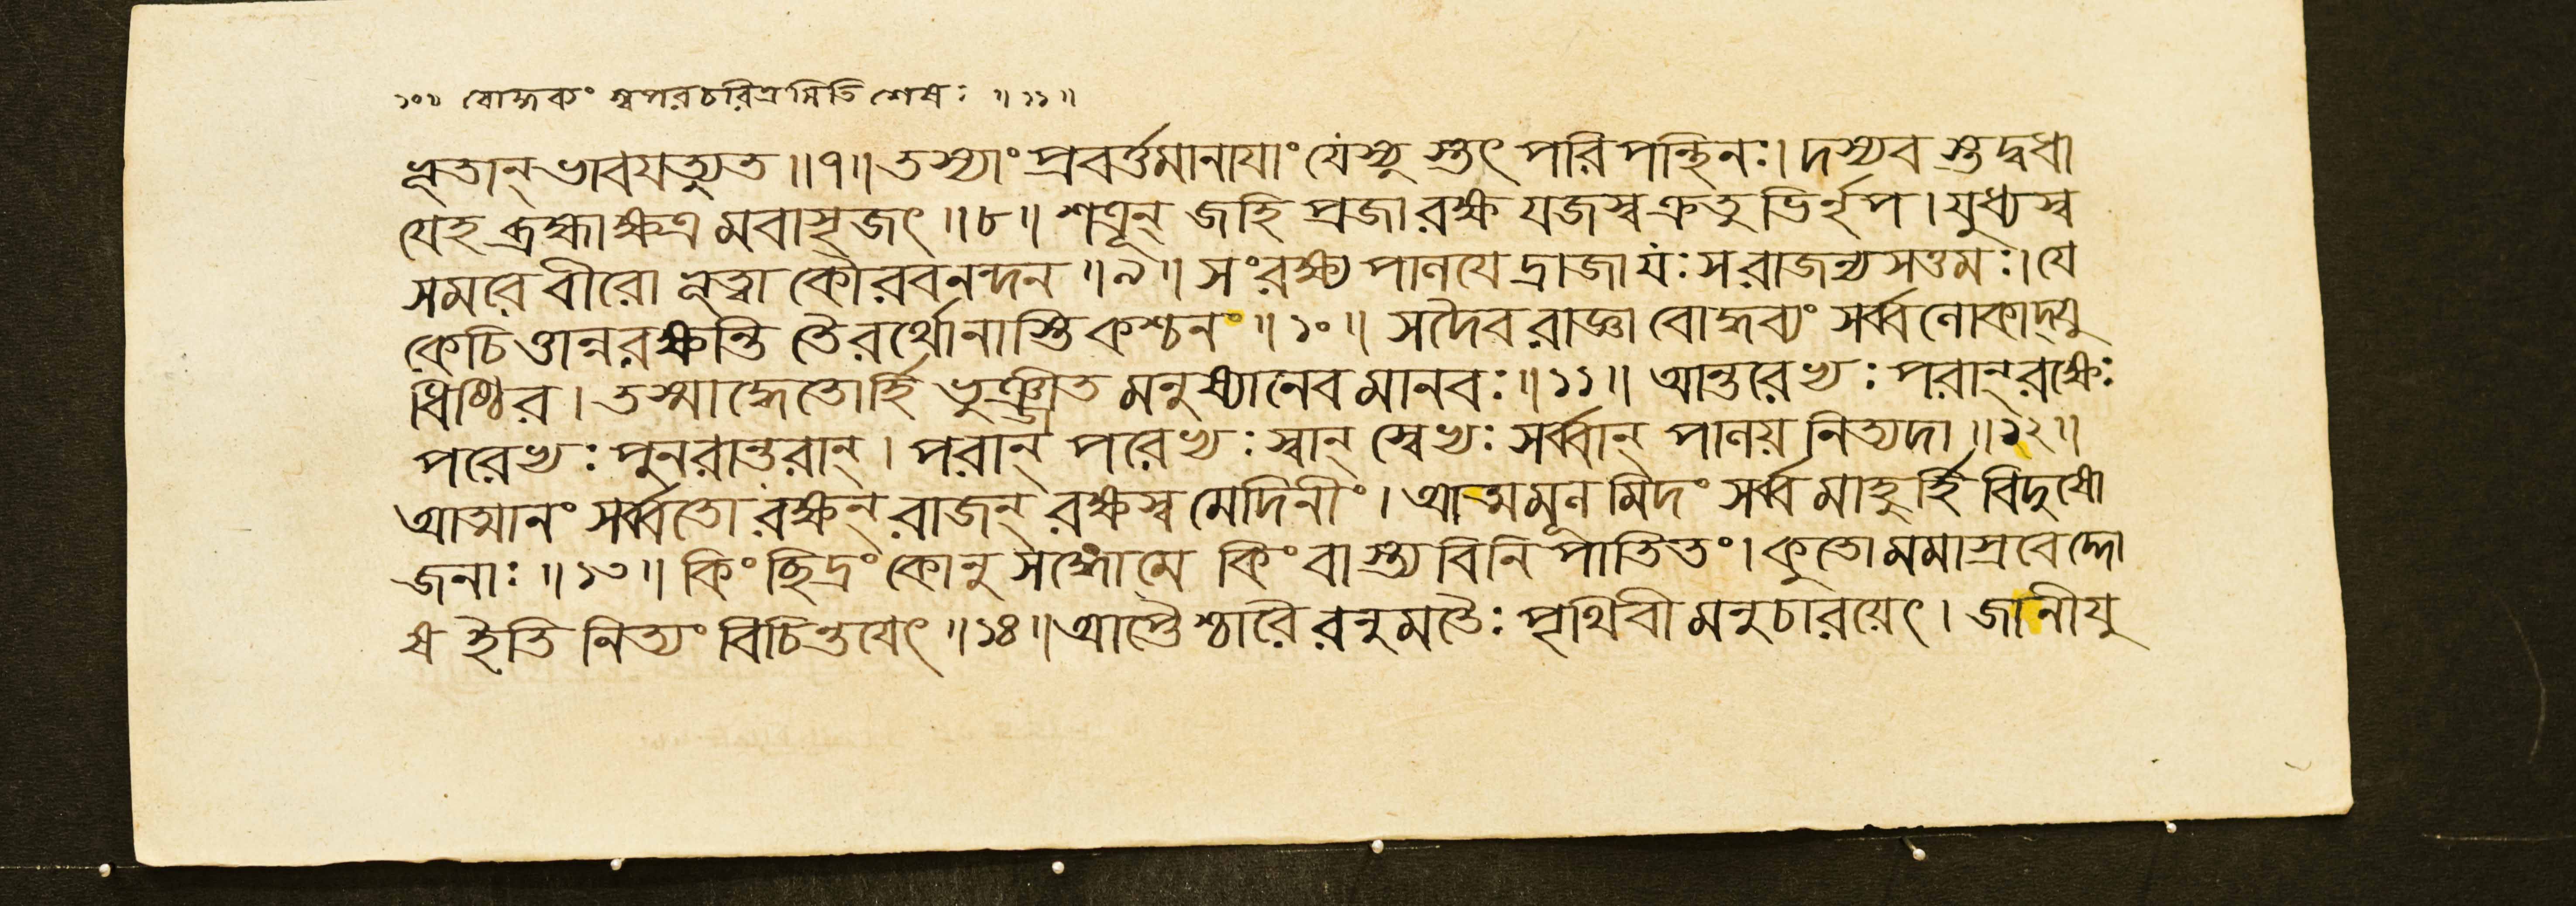 ১০১ বোদ্ধব্যং স্বপরচরিত্রমিতি শেষঃ ॥১১॥
ভূতান্ ভাবযত্যুত ॥৭॥ তস্যাং প্রবর্ত্তমানাযাং যে স্যুস্তৎ পরিপন্থিনঃ। দস্যবস্তদ্বধা
যেহ ব্রহ্মা ক্ষত্রমবাসৃজৎ ॥৮॥ শত্রূন্ জহি প্রজা রক্ষ যজস্ব ক্রতুভির্নৃপ। যুধ্যস্ব
সমরে বীরো ভূত্বা কৌরবনন্দন ॥৯॥ সংরক্ষ্য পালযেদ্রাজা যঃ স রাজন্যসত্তমঃ। যে
কেচিত্তান্ন রক্ষন্তি তৈরর্থো নাস্তি কশ্চন ॥১০॥ সদৈব রাজ্ঞা বোদ্ধব্যং সর্ব্বলোকাদ্যু
ধিষ্ঠির। তস্মাদ্ধেতোর্হি ভুঞ্জীত মনুষ্যানেব মানবঃ ॥১১॥ আন্তরেভ্যঃ পরান্ রক্ষেঃ
পরেভ্যঃ পুনরান্তরান্। পরান্ পরেভ্যঃ স্বান্ স্বেভ্যঃ সর্ব্বান্ পালয় নিত্যদা ॥১২॥
আত্মানং সর্ব্বতো রক্ষন্ রাজন্ রক্ষস্ব মেদিনীং। আত্মমূলমিদং সর্ব্বমাহুর্হি বিদুষো
জনাঃ ॥১৩॥ কিং ছিদ্রং কোনু সঙ্গো মে কিং বাস্ত্যবিনিপাতিতং। কুতো মমাস্রবেদ্দো
ষ ইতি নিত্যং বিচিন্তযেৎ ॥১৪॥ আপ্তৈশ্চারৈরনুমতৈঃ পৃথিবীমনুচারয়েৎ। জানীযু